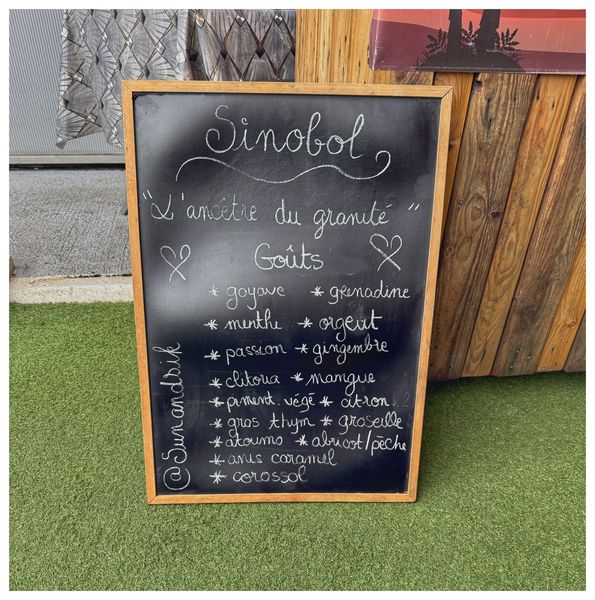 Sinobol
"L'ancêtre du granité"
Goûts
* goyave * grenadine
* menthe * orgeat
* passion * gingembre
* clitoria * mangue
* piment végé * citron
* gros thym * groseille
* atoumo * abricot/pêche
* anis caramel
* corossol
@Sunandsik